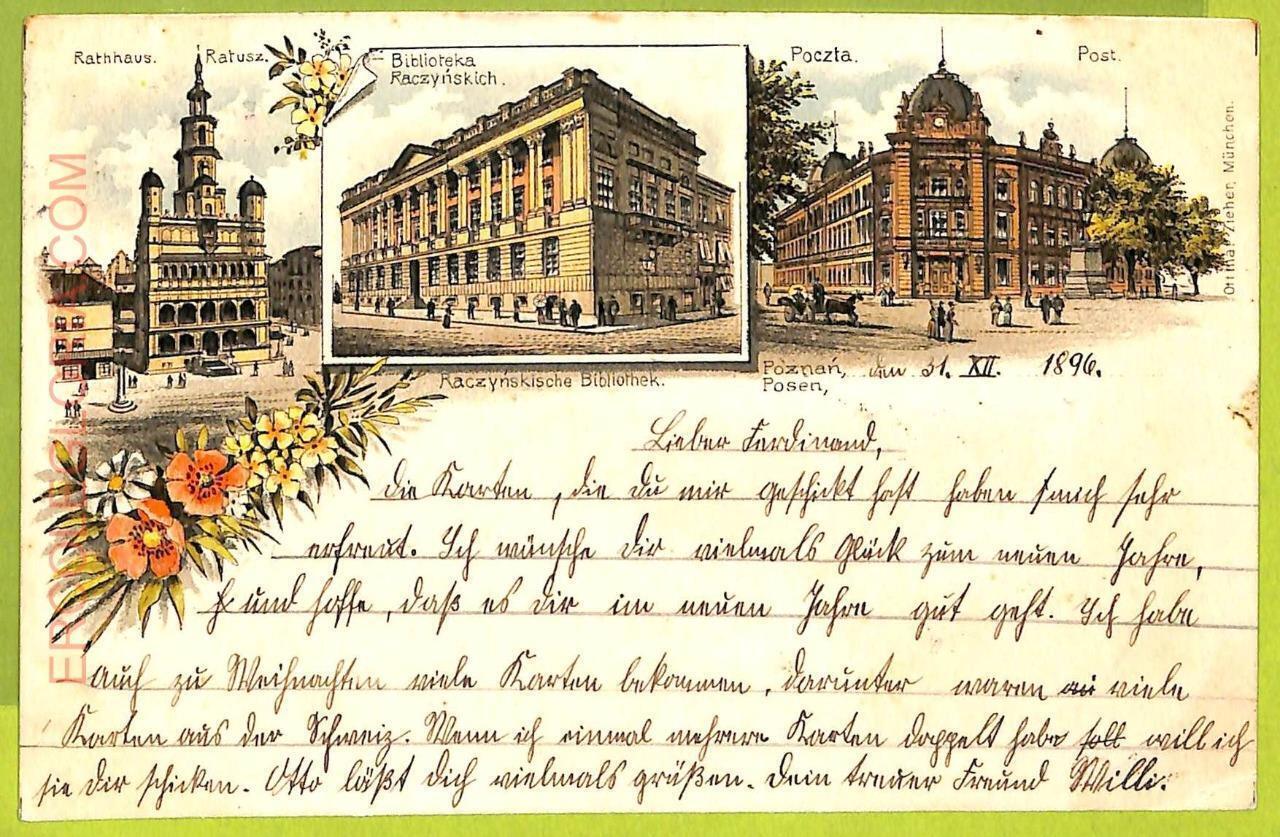 Rathhaus. Ratusz.
Biblioteka
Raczyńskich.
Poczta. Post.
Raczyńskische Bibliothek.
Ottmar Zieher, München.
Poznań, den 31. XII. 1896.
Posen,
Lieber Ferdinand,
die Karten, die du mir geschickt hast haben mich sehr
erfreut. Ich wünsche dir vielmals Glück zum neuen Jahre,
und hoffe, daß es dir im neuen Jahre gut geht. Ich habe
auch zu Weihnachten viele Karten bekommen, darunter waren viele
Karten aus der Schweiz. Wenn ich einmal mehrere Karten doppelt habe soll will ich
sie dir schicken. Otto läßt dich vielmals grüßen. Dein treuer Freund Willi.
EPOQUEGLORIA.COM